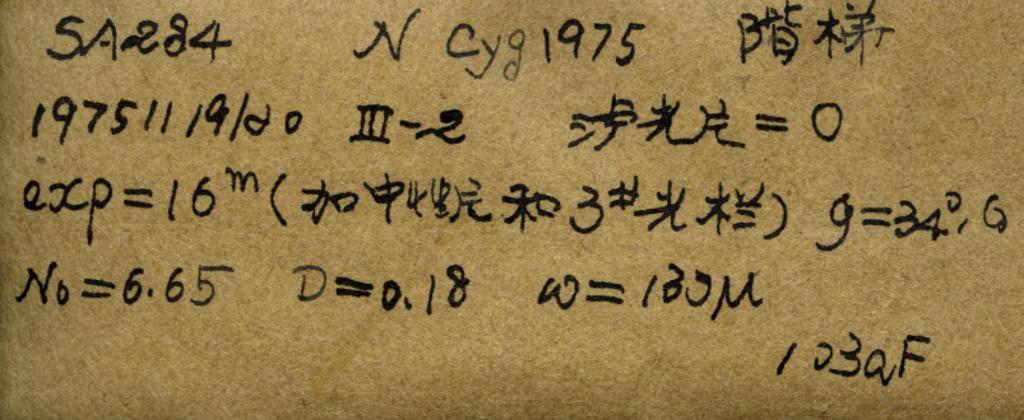 SA284 N Cyg 1975 阶梯
19751119/20 III-2 滤光片=0
exp=16m(加中性片和3#光栏) g=34°.6
No=6.65 D=0.18 ω=133μ
103aF